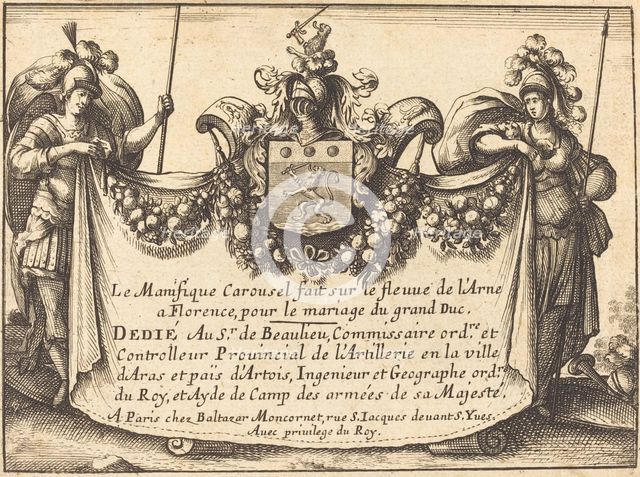 Le Manifique Carousel fait sur le fleuve de l'Arne
a Florence, pour le mariage du grand Duc.
DEDIÉ Au Sr. de Beaulieu, Commissaire ord.re et
Controlleur Provincial de l'Artillerie en la ville
d'Aras et païs d'Artois, Ingenieur et Geographe ord.r
du Roy, et Ayde de Camp des armées de sa Majesté.
A Paris chez Baltazar Moncornet, rue S. Iacques devant S. Yves.
Avec privilege du Roy.